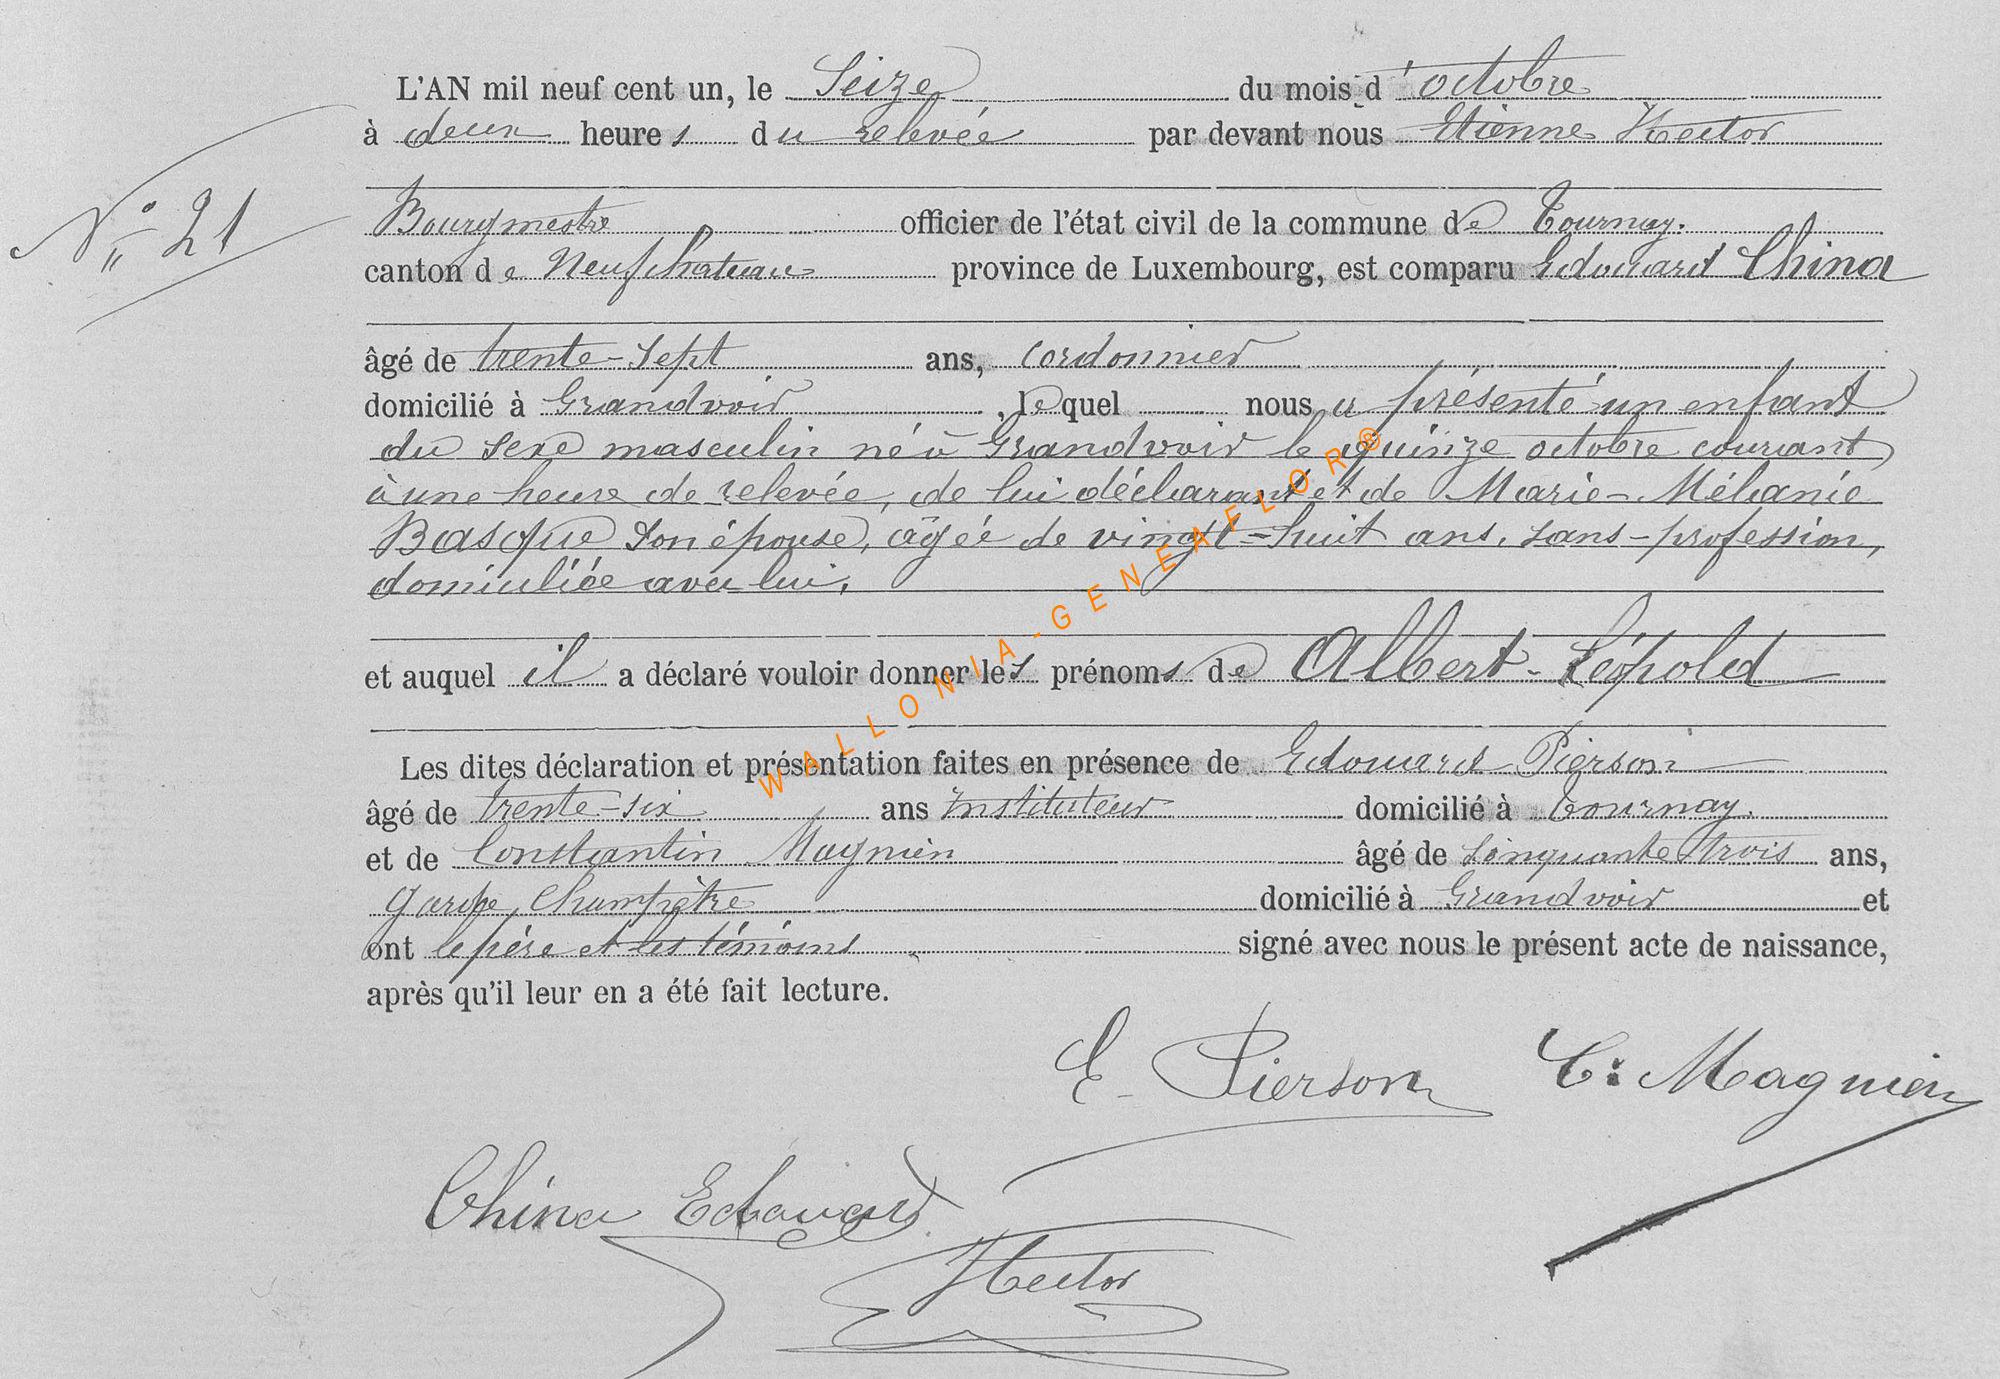 L'AN mil neuf cent un, le Seize du mois d'octobre
à deux heures du relevée par devant nous Etienne Hector
N° 21
Bourgmestre officier de l'état civil de la commune de Tournay.
canton de Neufchateau province de Luxembourg, est comparu Edouard China
âgé de trente-sept ans, cordonnier
domicilié à Grandvoir, lequel nous a présenté un enfant
du sexe masculin né à Grandvoir le quinze octobre courant,
à une heure de relevée, de lui déclarant et de Marie-Mélanie
Basque son épouse, âgée de vingt-huit ans, sans-profession,
domiciliée avec lui,
et auquel il a déclaré vouloir donner les prénoms de Albert-Léopold
Les dites déclaration et présentation faites en présence de Edouard Pierson
âgé de trente-six ans Instituteur domicilié à Tournay.
et de Constantin Magnien âgé de Cinquante trois ans,
garde, Champêtre domicilié à Grandvoir et
ont le père et les témoins signé avec nous le présent acte de naissance,
après qu'il leur en a été fait lecture.
WALLONIA-GENEAFLOR®
E. Pierson C: Magnien
China Edouard
Hector